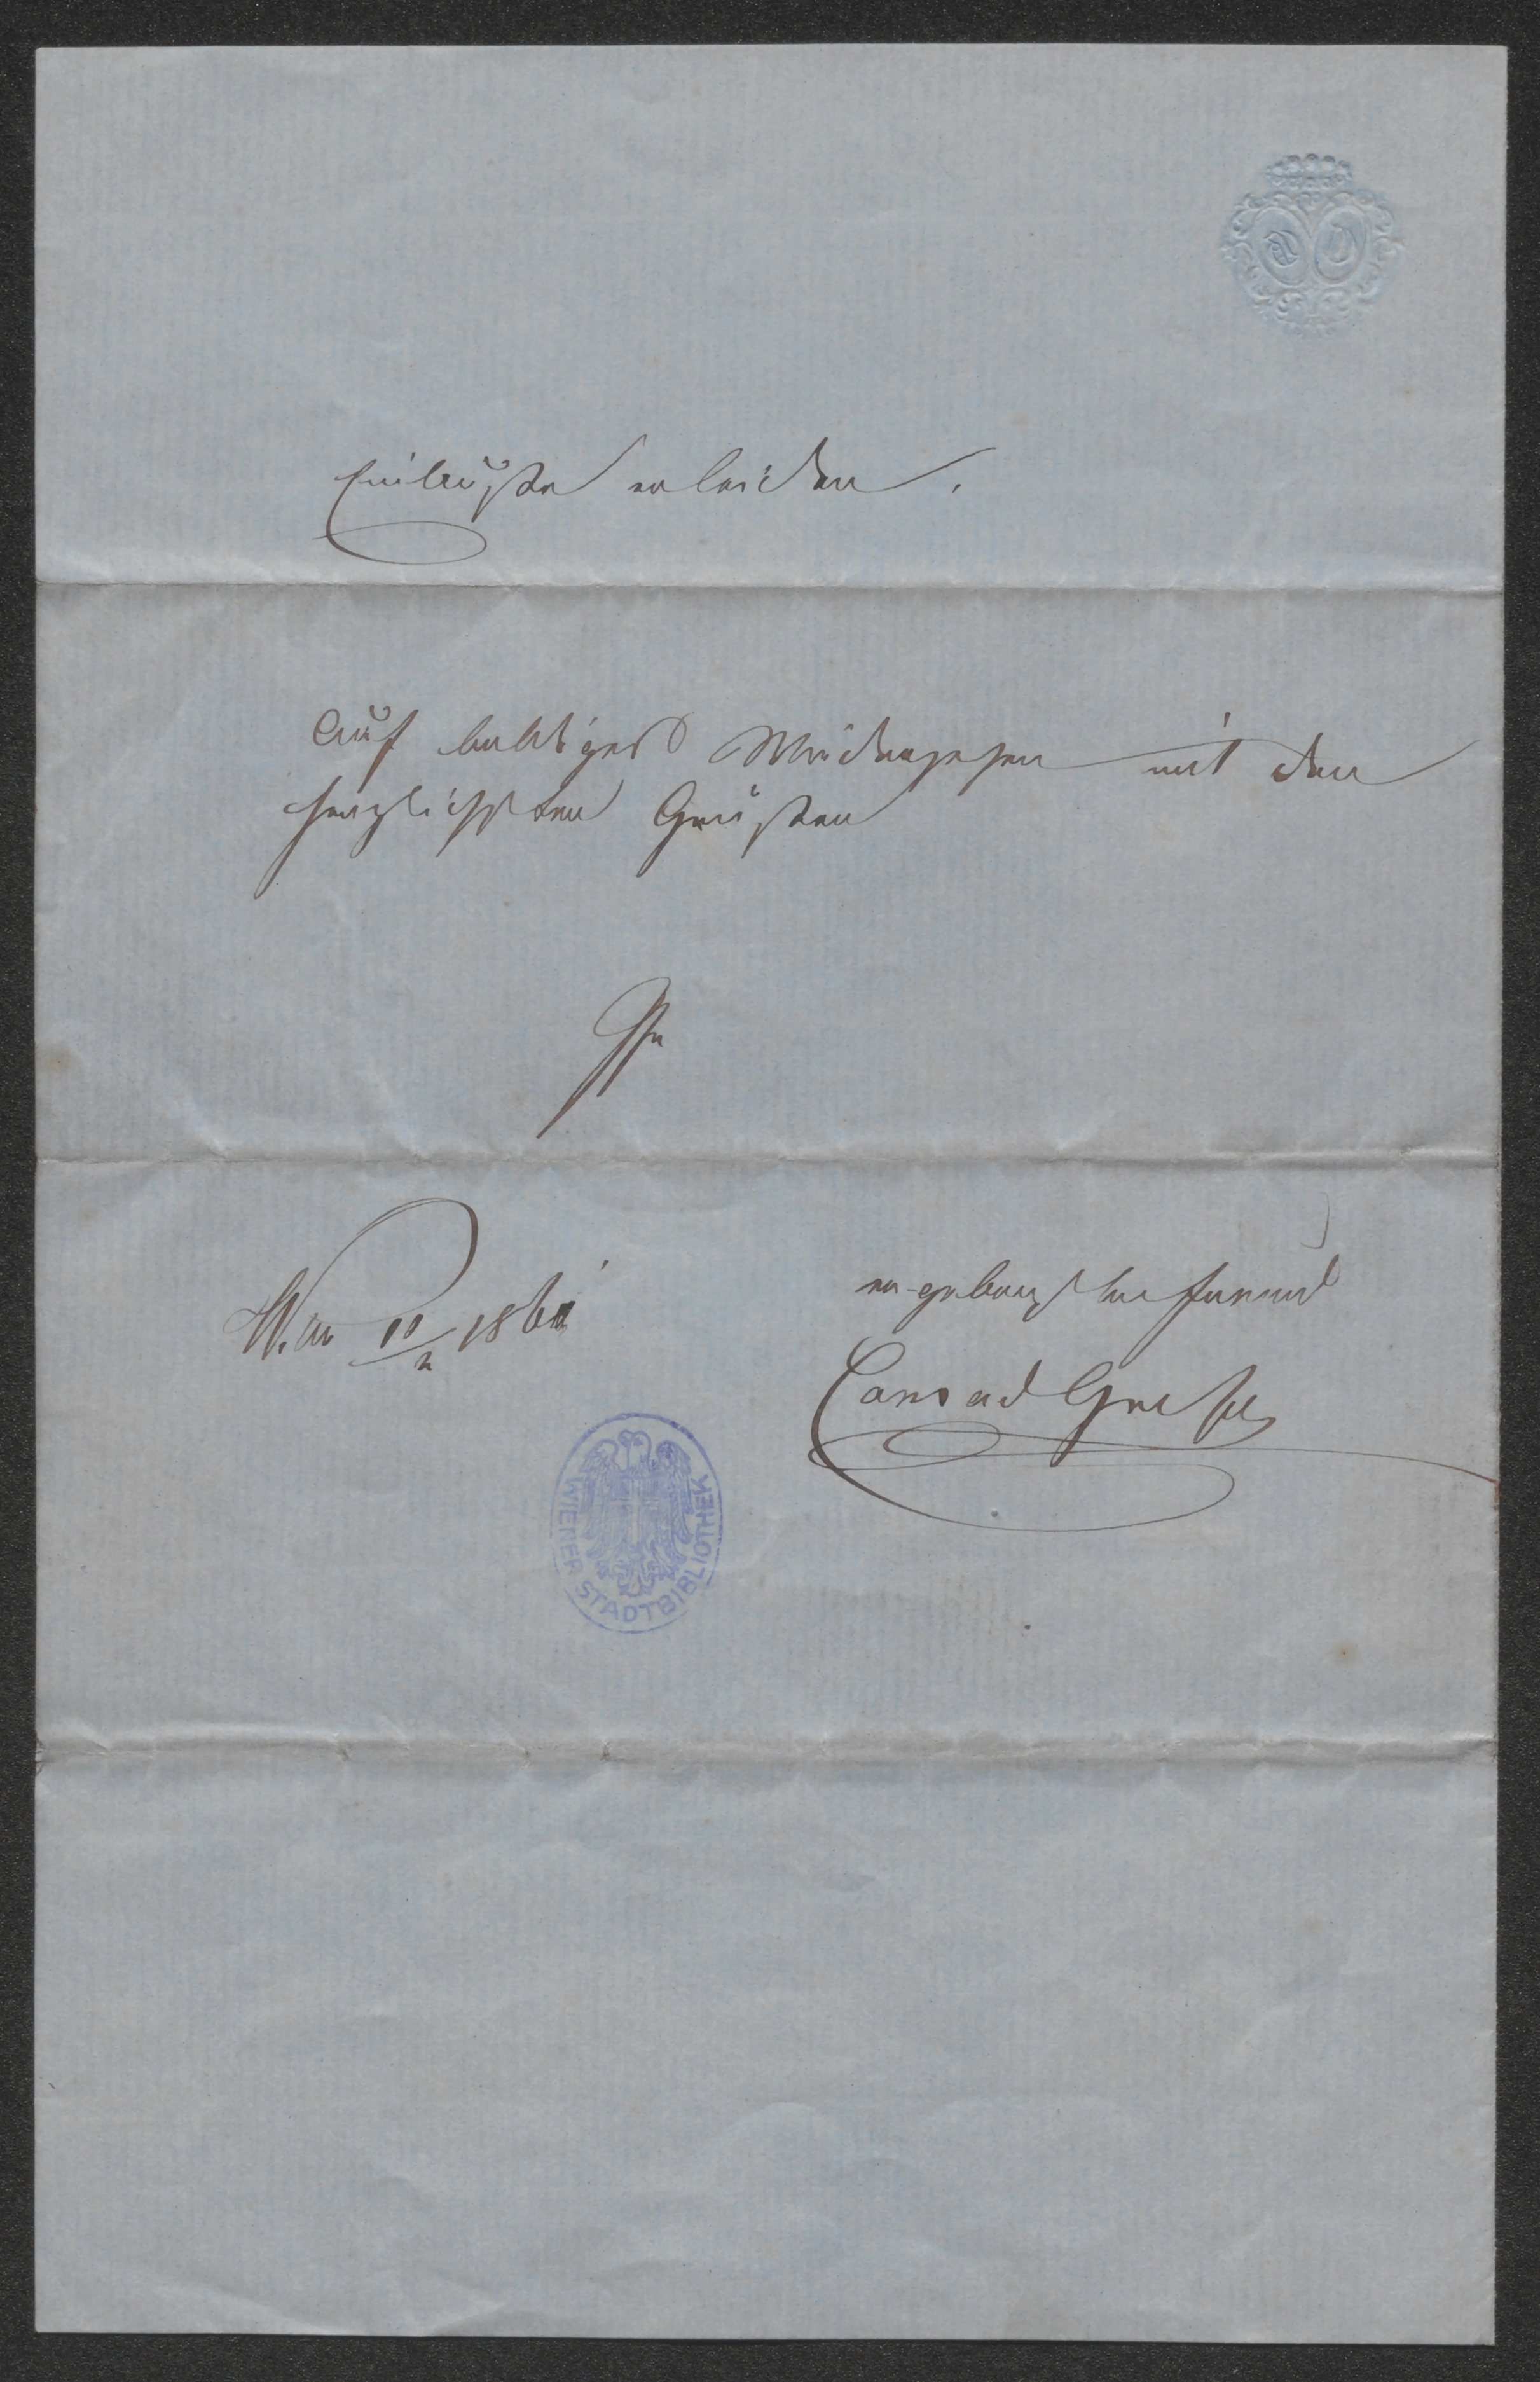 Einbuße erleiden.
Auf baldiges Wiedersehen mit den
herzlichsten Grüßen
Ihr
Wien 10/2 186
ergebenster Freund
Conrad Grefe
WIENER STADTBIBLIOTHEK